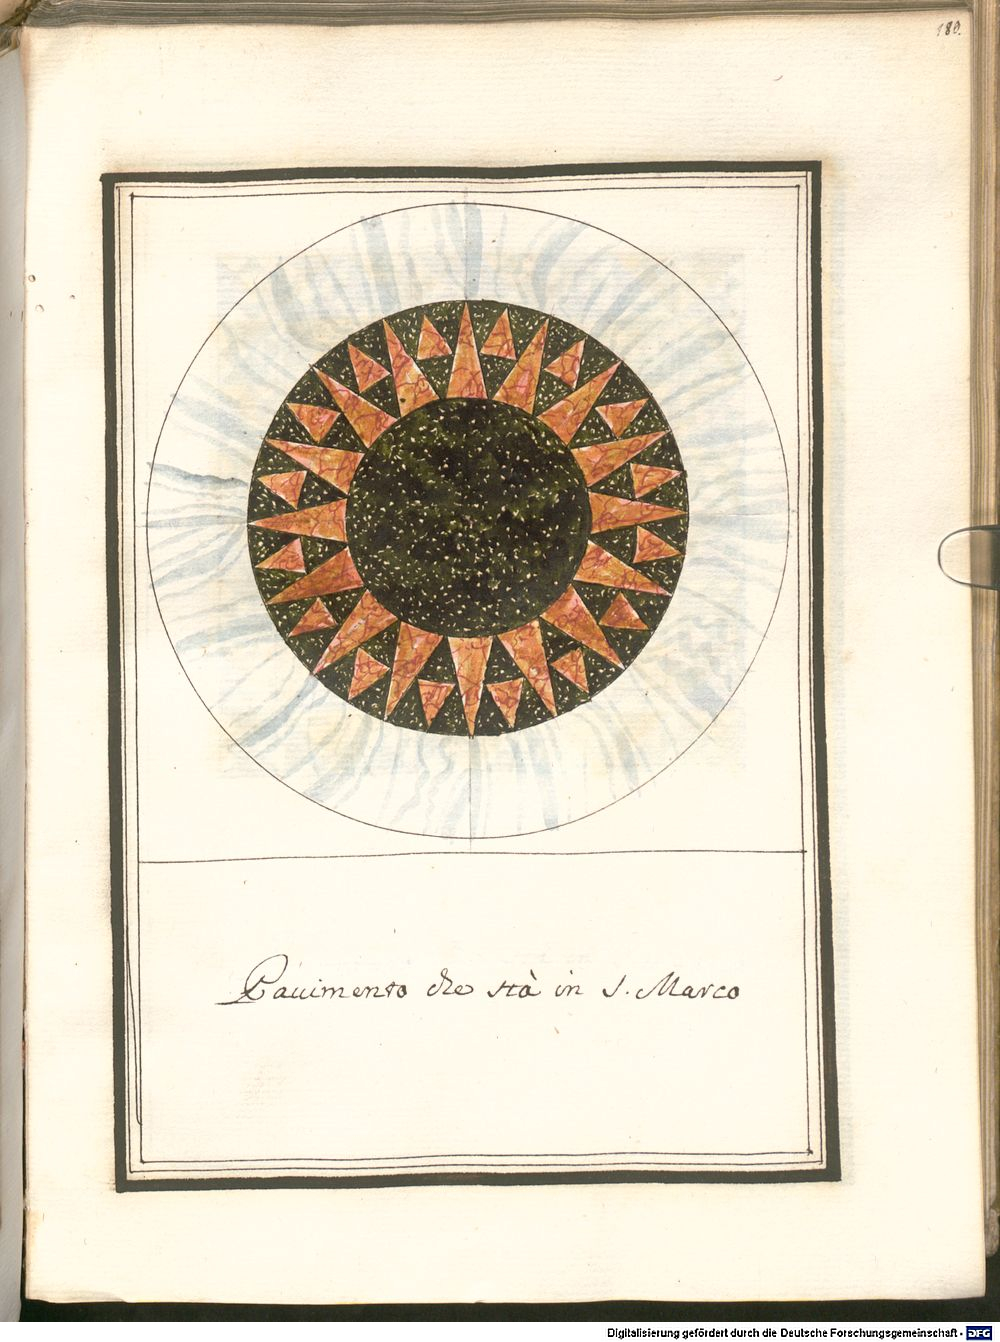 180.
Pauimento che stà in S. Marco
Digitalisierung gefördert durch die Deutsche Forschungsgemeinschaft - DFG